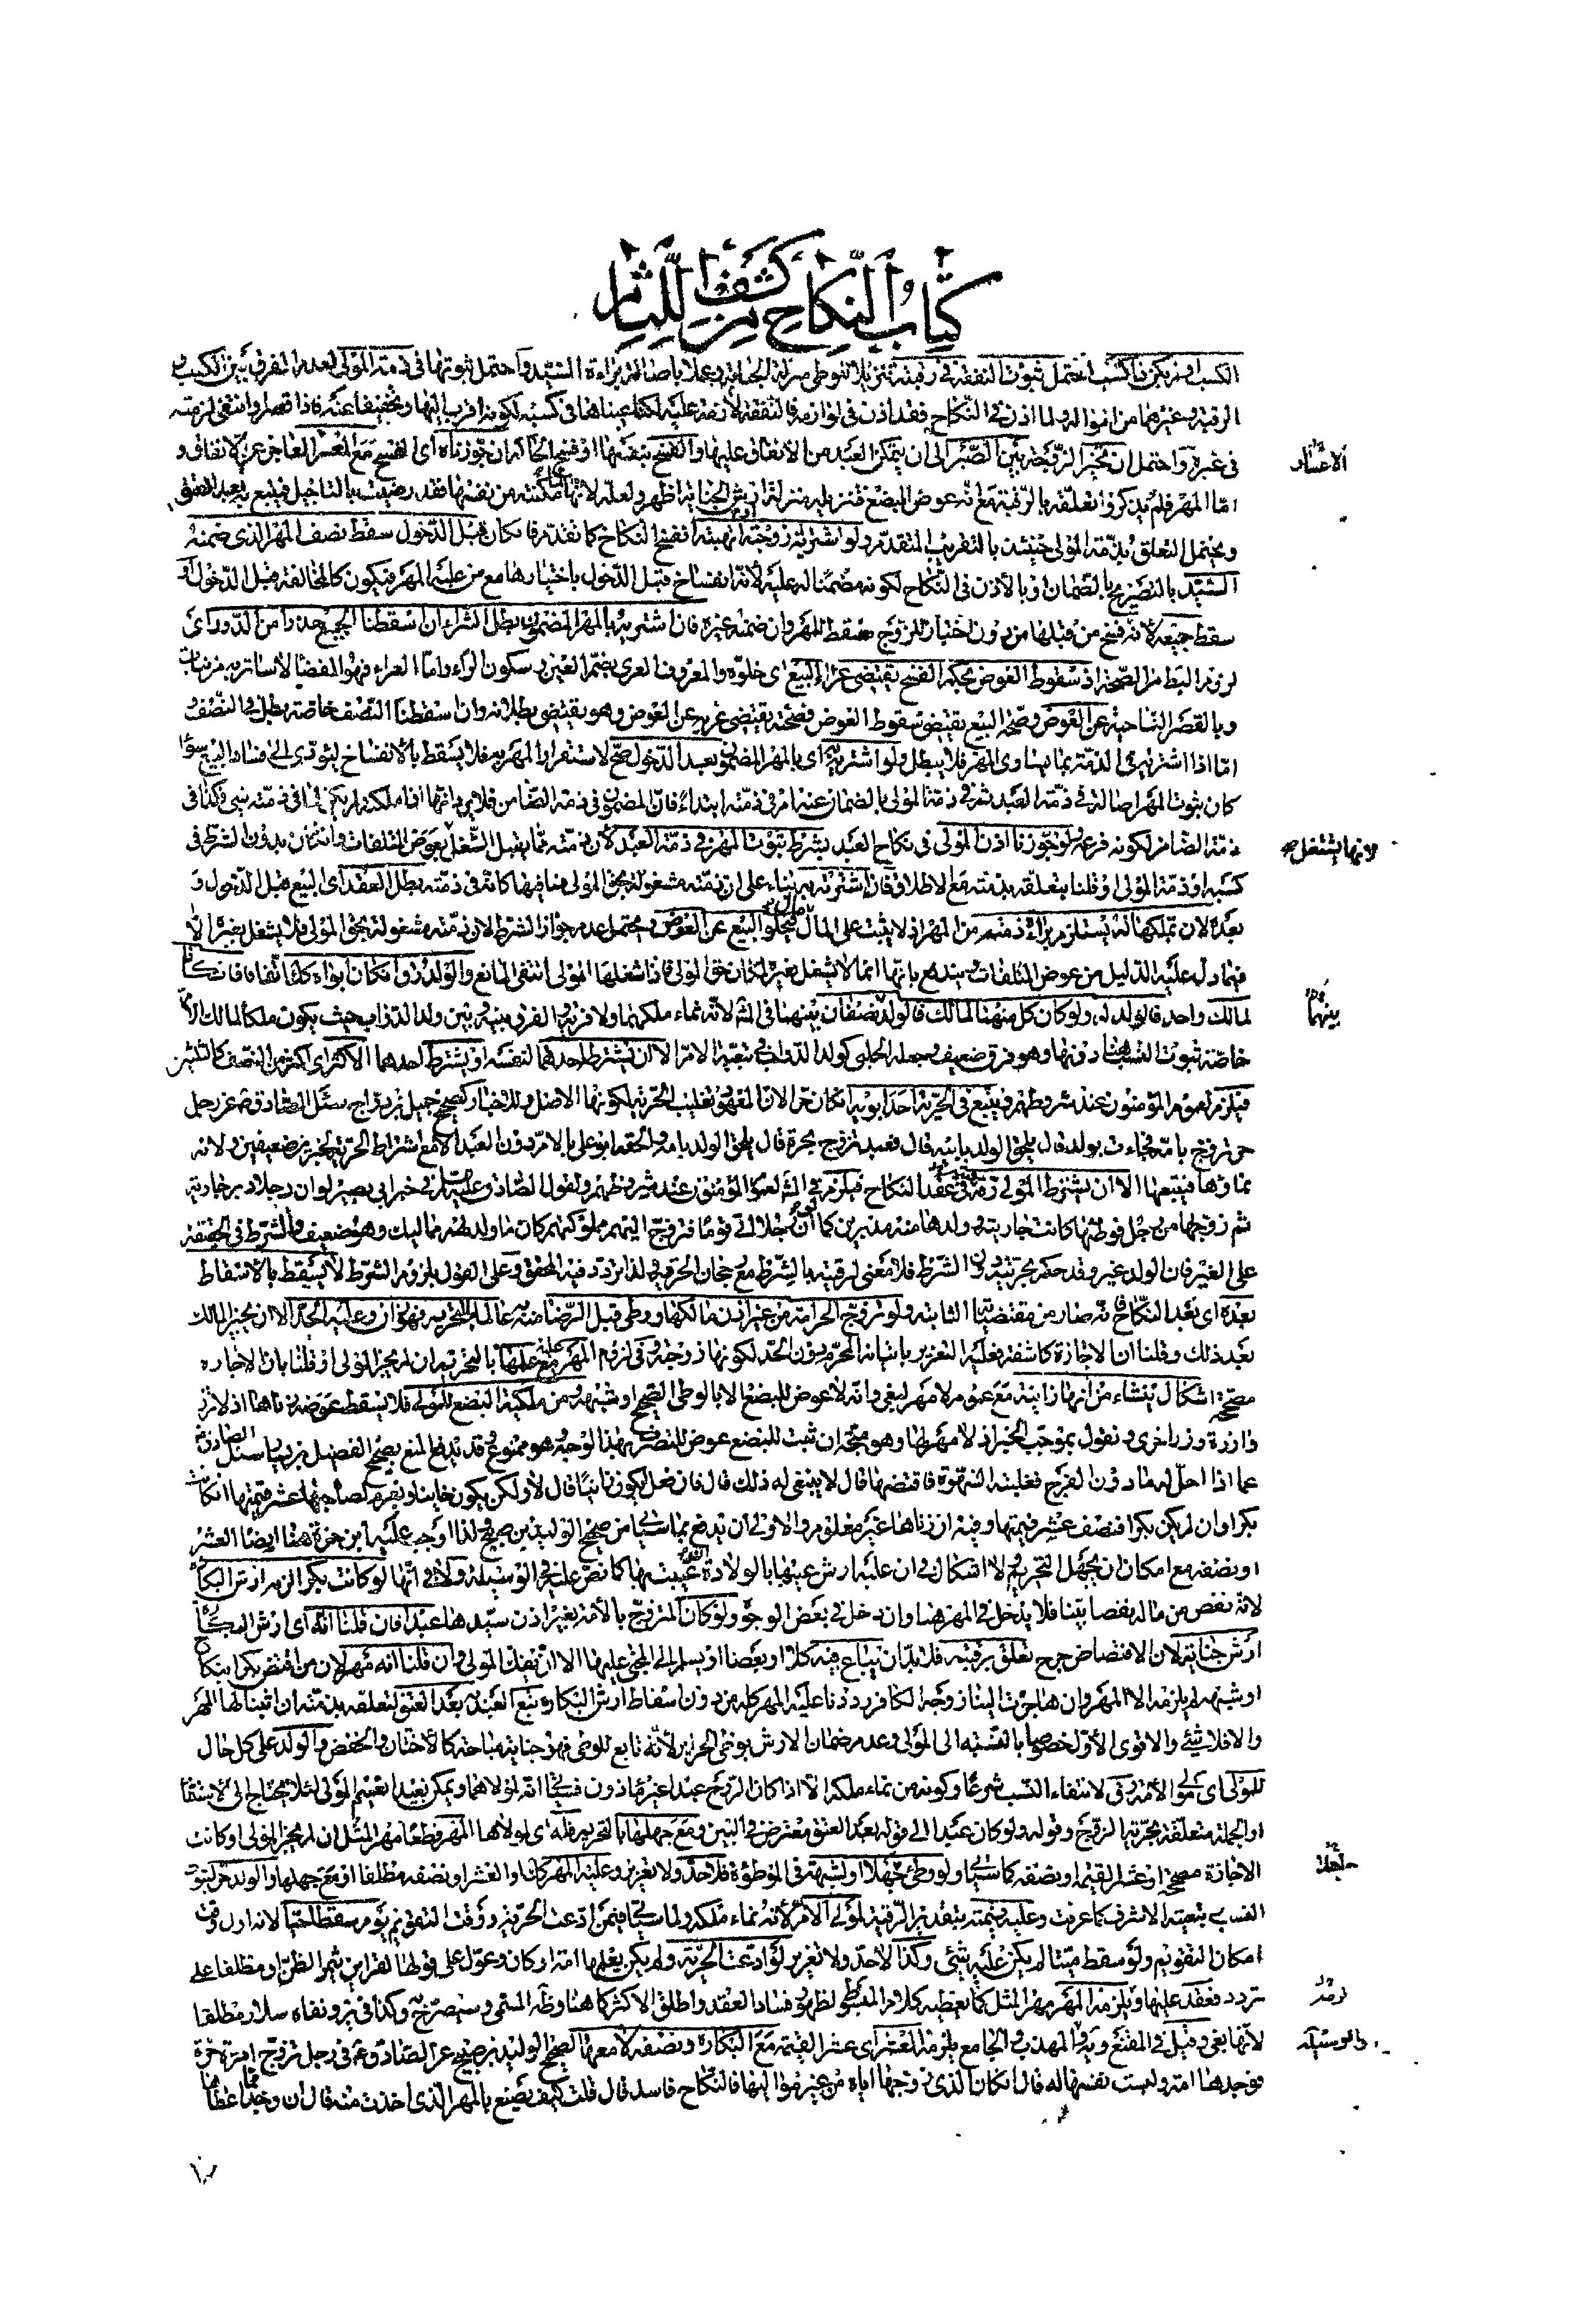 كتاب النكاح من كشف اللثام
الكسب او لم يكن ذا كسب احتمل ثبوت النفقة في رقبته تنزيلا للوطي منزلة الجناية وعملا باصالة براءة السيد واحتمل ثبوتها في ذمة المولى لعدم الفرق بين الكسب و
الرقبة وغيرهما من امواله ولما اذن في النكاح فقد اذن في لوازمه فالنفقة لازمة عليه لكنا عيناها في كسبه لكونه اقرب اليها وتخفيفا عنه فاذا قصر او انتفى لزمته
في غيره واحتمل ان يخير الزوجة بين الصبر الى ان يتمكن العبد من الانفاق عليها والفسخ بنفسها او فسخ الحاكم ان جوزناه اى الفسخ مع العسر العاجز عن الانفاق و
الاعسار
اما المهر فلم يذكروا تعلقه بالرقبة مع انه عوض البضع فتنزيله منزلة ارش الجناية اظهر ولعله لانها لما مكنته من نفسها فقد رضيت بالتاجيل فيتبع به بعد العتق
ويحتمل التعلق بذمة المولى حينئذ بالتقريب المتقدم ولو اشترته زوجته او اتهبته انفسخ النكاح كما تقدم فان كان قبل الدخول سقط نصف المهر الذي ضمنه
السيد بالتصريح بالضمان او بالاذن في النكاح لكونه مضمنا له عليه لانه انفساخ قبل الدخول باختيارها مع من عليه المهر فيكون كالمخالعة قبل الدخول او
سقط جميعه لانه فسخ من قبلها من دون اختيار للزوج فسقط المهر وان ضمنه غيره فان اشترته بالمهر المضمون بطل الشراء ان اسقطنا الجميع حذرا من الدور اى
لزوم البطلان من الصحة اذ سقوط العوض بحكم الفسخ يقتضي عراء البيع اى خلوه والمعروف العرى بضم العين وسكون الراء واما العراء فهو الفضا لا ساتر به من نبات
وبالقصر الناحية عن العوض وصحة البيع يقتضي سقوط العوض فصحته يقتضي عريه عن العوض وهو يقتضي بطلانه وان اسقطنا النصف خاصة بطل في النصف و
اما اذا اشترته في الذمة بما يساوى المهر فلا يبطل ولو اشترته اى بالمهر المضمون بعد الدخول صح لاستقرار المهر به فلا يسقط بالانفساخ ليؤدى الى فساد البيع سواء
كان ثبوت المهر اصالة في ذمة العبد ثم في ذمة المولى بالضمان عنه ام في ذمته ابتداء فان المضمون في ذمة الضامن فلا يرد انها اذا ملكته لم يكن لها في ذمته شيء وكذا في
ذمة الضامن لكونه فرعه ولو جوزنا اذن المولى في نكاح العبد بشرط ثبوت المهر في ذمة العبد لان ذمته مما يقبل الشغل بعوض المتلفات وان كان بدون الشرط في
لانها يشتغل
كسبه او ذمة المولى او قلنا بتعلقه بذمته مع الاطلاق فان اشترته به بناء على ان ذمته مشغولة بحق المولى بطل العقد اى البيع قبل الدخول و
بعده لان تملكها له يستلزم براءة ذمته من المهر اذ لا يثبت على المال مال فيخلو البيع عن العوض ويحتمل عدم جواز الشرط لان ذمته مشغولة بحق المولى فلا يشغل بغيره الا
فيما دل عليه الدليل من عوض المتلفات ويندفع بانها انما لا يشغل بغيره لمكان حق المولى فاذا شغلها المولى انتفى المانع والولد رق ان كان ابواه كذلك اتفاقا فان كانا
لمالك واحد فالولد له ولو كان كل منهما لمالك فالولد نصفان بينهما في المشهور لانه نماء ملكهما ولا مزية والفرق بينه وبين ولد الدواب حيث يكون ملكا لمالك الام
بينهما
خاصة ثبوت النسب هنا دونها وهو فرق ضعيف وجعله الحلبي كولد الدواب في تبعية الام الا ان يشترط احدهما لنفسه او يشترط احدهما الاكثر اى اكثر من النصف كالثلثين
فيلزم لعموم المؤمنون عند شروطهم ويتبع في الحرية احد ابويه ان كان حرا لان المعهود تغليب الحرية لكونها الاصل وللاخبار كصحيح جميل بن دراج سئل الصادق ع عن رجل
حر تزوج بامة فجاءت بولد قال يلحق الولد بابيه قال فعبد تزوج بحرة قال يلحق الولد بامه والحقه ابو على بالام دون العبد الا مع اشتراط الحرية لخبرين ضعيفين ولانه
نماؤها فيتبعها الا ان يشترط المولى رقه في عقد النكاح فيلزم في المشهور لعموم المؤمنون عند شروطهم ولقول الصادق عليه السلام في خبر ابي بصير لو ان رجلا دبر جارية
ثم زوجها من رجل فوطئها كانت جاريته وولدها منه مدبرين كما لو ان رجلا اتى قوما فتزوج اليهم مملوكتهم كان ما ولد لهم مماليك وهو ضعيف والشرط في الحقيقة
على الغير فان الولد غيره وقد حكم بحريته دون الشرط فلا معنى لرقيته بالشرط مع رجحان الحرية ولذا تردد فيه المحقق وعلى القول بلزوم الشرط لا يسقط بالاسقاط
بعده اى بعد النكاح فانه صار من مقتضياته الثابتة ولو تزوج الحر امة من غير اذن مالكها ووطى قبل الرضا منه عالما بالتحريم فهو زان وعليه الحد الا ان يجيز المالك
بعد ذلك وقلنا ان الاجازة كاشفة فعليه التعزير باتيانه المحرم دون الحد لكونها زوجته وفي لزوم المهر عليه مع علمها بالتحريم ان لم يجز المولى او قلنا بان الاجازة
مصححة اشكال ينشاء من انها زانية مع عموم لا مهر لبغي وانه لا عوض للبضع الا بالوطي الصحيح او شبهه ومن ملكية البضع للمولى فلا يسقط عوضه بزناها اذ لا تزر
وازرة وزر اخرى ونقول بموجب الخبر اذ لا مهر لها وهو متجه ان ثبت للبضع عوض للتصرف بهذا الوجه وهو ممنوع وقد يدفع المنع بصحيح الفضيل بن يسار سئل الصادق ع
عما اذا احل له ما دون الفرج فغلبته الشهوة فاقتضها قال لا ينبغي له ذلك قال فان فعل ايكون زانيا قال لا ولكن يكون خاينا ويغرم لصاحبها عشر قيمتها ان كانت
بكرا وان لم يكن بكرا فنصف عشر قيمتها وفيه ان زناها غير معلوم والاولى ان يدفع بما سيأتي من صحيح الوليد بن صبيح ولذا اوجب عليه ابن حمزة هنا ايضا العشر
او نصفه مع امكان ان يجهل التحريم ولا اشكال في ان عليه ارش عيبها بالولادة ان عيبت بها كما نص عليه في الوسيلة وكذا في انها لو كانت بكرا لزم ارش البكارة
لانه نقص من ماله بعضا بيّنا فلا يدخل في المهر هنا وان دخل في بعض الوجوه ولو كان المتزوج بالامة بغير اذن سيدها عبدا فان قلنا انه اى ارش البكارة
ارش جناية لان الاقتضاض جرح تعلق برقبته فلا بد ان يباع فيه كلا او بعضا او يسلم الى المجني عليها الا ان يفكه المولى وان قلنا انه مهر لان من اقتض بكرا بنكاح
او شبهه لم يلزمه الا المهر وان هاجرت الينا زوجة الكافر رددنا عليه المهر كله من دون اسقاط ارش البكارة تبع العبد به بعد العتق لتعلقه بذمته ان اثبتنا لها المهر
والا فلا شيء والاقوى الاول خصوصا بالنسبة الى المولى وعدم ضمان الارش بوطى الحرائر لانه تابع للوطى فهو جناية مباحة كالاختتان والخفض والولد على كل حال
للمولى اى مولى الامة رق لانتفاء النسب شرعا وكونه من نماء ملكه الا اذا كان الزوج عبدا غير ماذون فسيأتي انه لمولاهما ويمكن تعميم المولى لئلا يحتاج الى الاستثناء
او الجملة متعلقة بحرية الزوج وقوله ولو كان عبدا الى قوله بعد العتق معترض في البين ومع جهلها بالتحريم فله اى لمولاها المهر قطعا مهر المثل ان لم يجز المولى او كانت
الاجازة مصححة او عشر القيمة او نصفه كما سيأتي ولو وطئ جهلا او لشبهة في الموطؤة فلا حد ولا تعزير وعليه المهر كلا او العشر او نصفه مطلقا او مع جهلها والولد حر لثبوت
جاهلا
النسب وتبعيته الاشرف كما عرفت وعليه قيمته بتقدير الرقية لمولى الام لانه نماء ملكه ولما سيأتي فيمن ادعت الحرية ووقت التقويم يوم سقط حيا لانه اول وقت
امكان التقويم ولو سقط ميتا لم يكن عليه شيء وكذا لا حد ولا تعزير لو ادعت الحرية ولم يكن يعلمها امة او كان وعول على قولها لقراين تثمر الظن او مطلقا على
تردد فعقد عليها ويلزمه المهر مهر المثل كما يعطيه كلام المبسوط لظهور فساد العقد واطلق الاكثر كما هنا وظاهره المسمى وسيصرح به وكذا في يز ونفاه سلار مطلقا
لانها بغي وقيل في المقنع ويه والمهذب والجامع يلزمه العشر اى عشر القيمة مع البكارة ونصفه لا معها لصحيح الوليد بن صبيح عن الصادق ع في رجل تزوج امرءة حرة
والوسيلة
فوجدها امة دلست نفسها له قال ان كان الذي زوجها اياه من غير مواليها فالنكاح فاسد قال قلت كيف يصنع بالمهر الذي اخذت منه قال ان وجد مما اعطاها